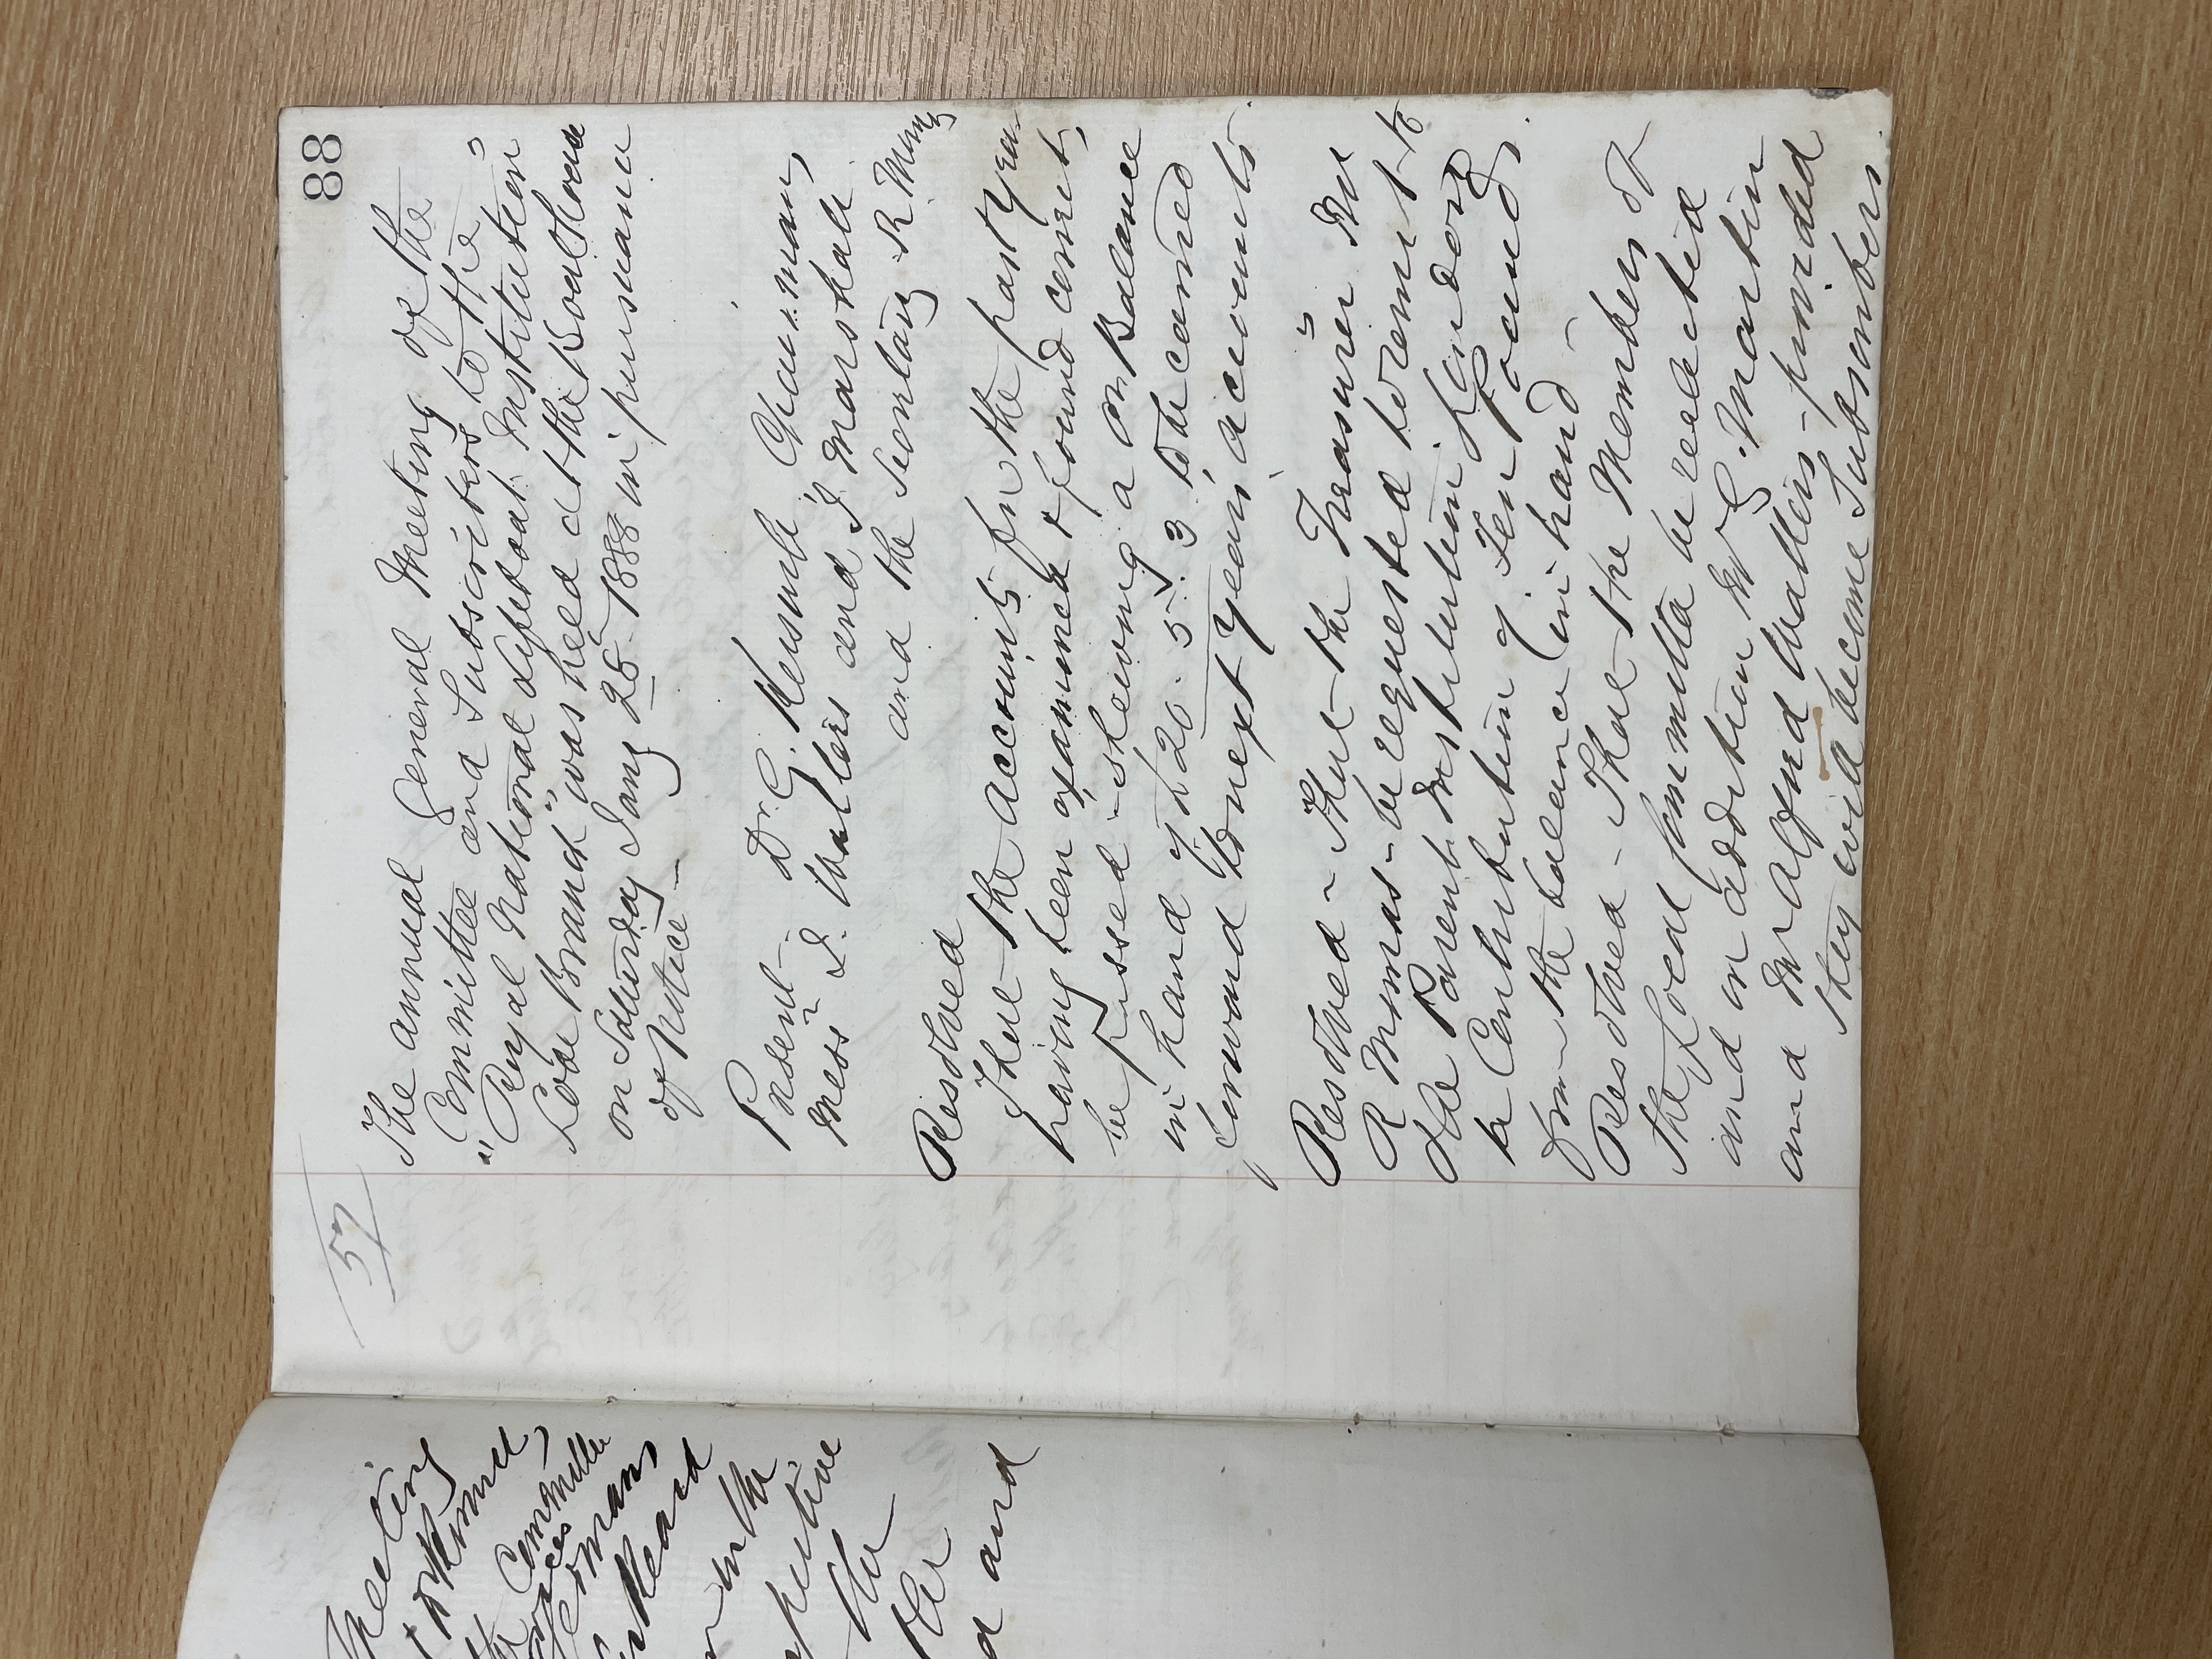 57
88
The annual General Meeting of the
Committee and Subscribers to the
"Royal National Lifeboat Institution"
Looe Branch" was held at the Boathouse
on Saturday Jany 28 1888 in pursuance
of Notice -
Present - Dr. G. Kerswill Chairman,
Messrs I. Walters and J Marshall
and the Secretary R
Resolved
That the accounts for the past year
having been examined & found correct,
be passed - shewing a on Balance
in hand of £20. 5. 3 to be carried
forward to next years accounts.
Resolved - That the Treasurer Mr
R - be requested to remit to
the Parent Institution, London,
a Contribution of Ten Pounds.
from the balance in hand -
Resolved - That the Members of
the Local Committee be reelected
and in addition Mr Martin
and Mr Alford Walters - provided
they will become Subscribers
Meeting
Committee
in the
and